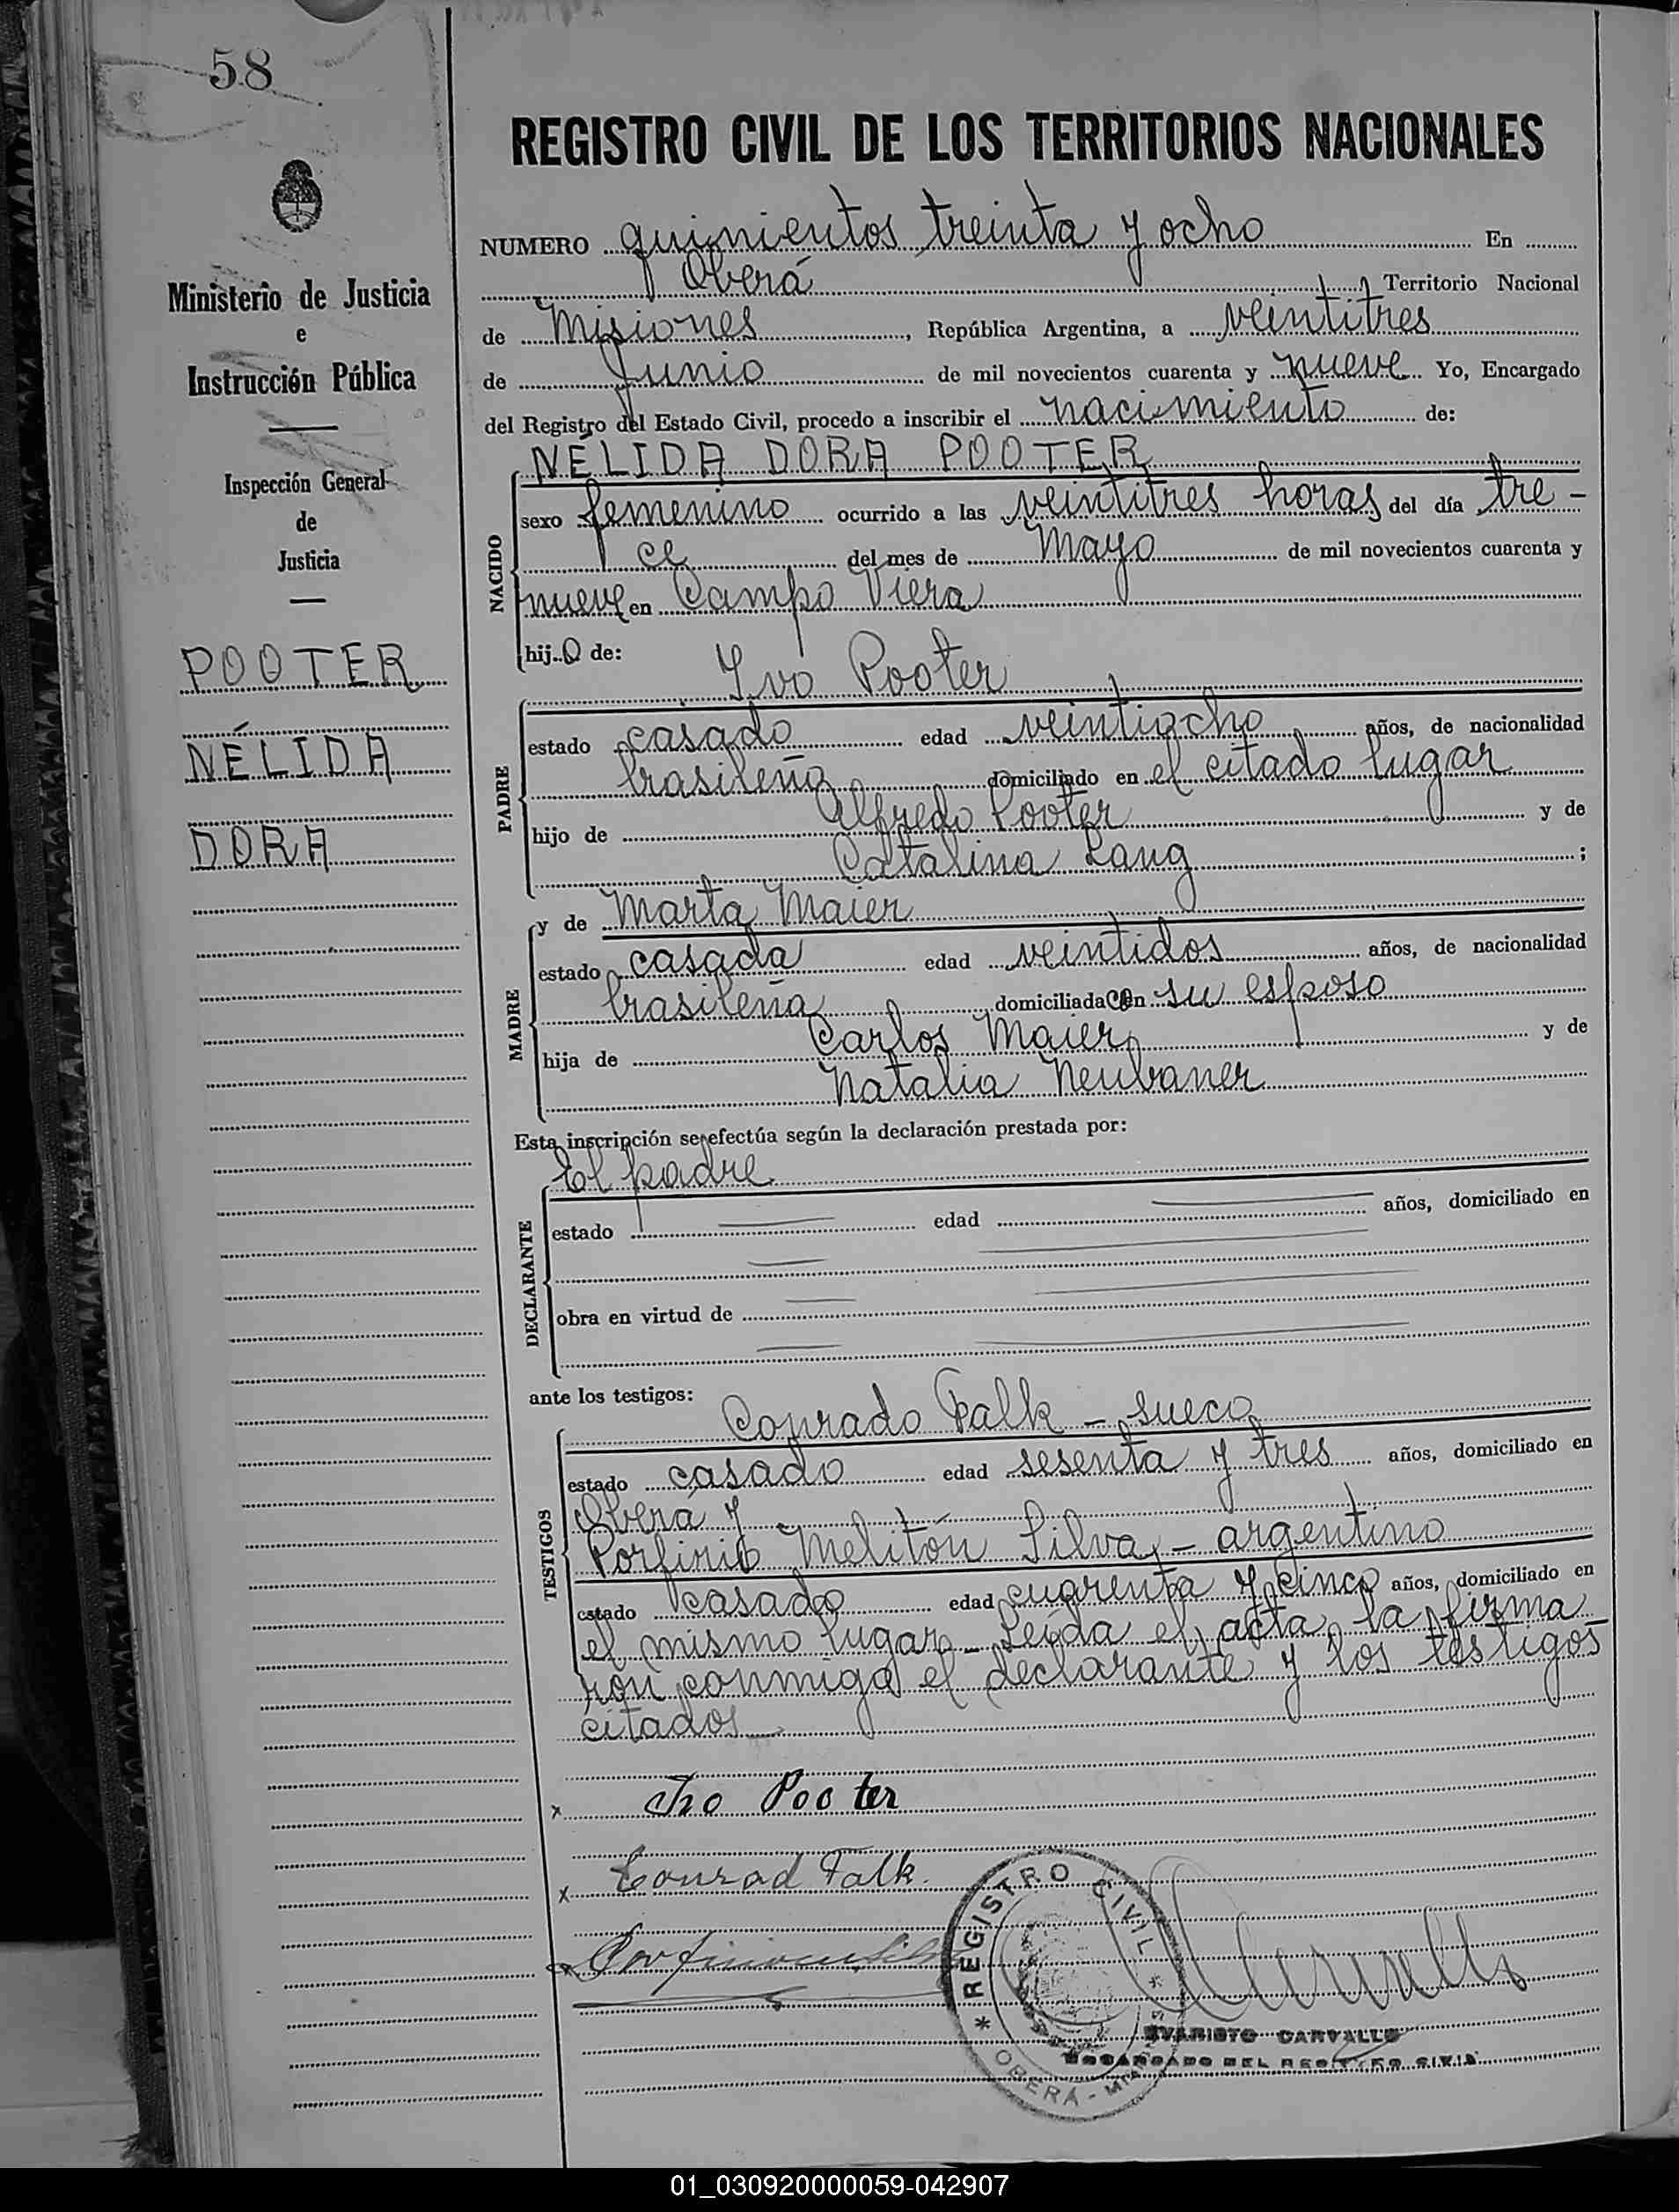 58
Ministerio de Justicia
e
Instrucción Pública
Inspección General
de
Justicia
POOTER
NÉLIDA
DORA
REGISTRO CIVIL DE LOS TERRITORIOS NACIONALES
NUMERO quinientos treinta y ocho En
Oberá Territorio Nacional
de Misiones, República Argentina, a veintitres
de Junio de mil novecientos cuarenta y nueve Yo, Encargado
del Registro del Estado Civil, procedo a inscribir el nacimiento de:
NÉLIDA DORA POOTER
NACIDO
sexo femenino ocurrido a las veintitres horas del día tre-
ce del mes de Mayo de mil novecientos cuarenta y
nueve en Campo Viera
hija de:
Ivo Pooter
PADRE
estado casado edad veintiocho años, de nacionalidad
brasileña domiciliado en el citado lugar
hijo de Alfredo Pooter y de
Catalina Lang;
y de Marta Maier
MADRE
estado casada edad veintidos años, de nacionalidad
brasileña domiciliada con su esposo
hija de Carlos Maier y de
Natalia Neubaner
Esta inscripción se efectúa según la declaración prestada por:
El padre
DECLARANTE
estado edad años, domiciliado en
obra en virtud de
ante los testigos:
Conrado Falk - sueco
TESTIGOS
estado casado edad sesenta y tres años, domiciliado en
Oberá y
Porfirio Melitón Silva, - argentino
estado casado edad cuarenta y cinco años, domiciliado en
el mismo lugar. - Leída el acta, la firma-
ron conmigo el declarante y los testigos
citados
x Ivo Pooter
x Conrad Falk.
REGISTRO CIVIL
* OBERÁ -
EVARISTO CARVALLO
ENCARGADO DEL REGISTRO CIVIL
01_030920000059-042907